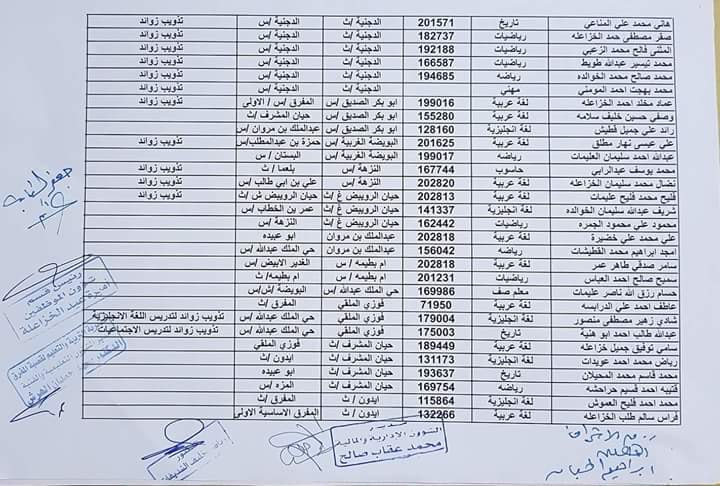 هاني محمد علي المناعي تاريخ 201571 الدجنية /ث الدجنية /س تذويب زوائد
صقر مصطفى حمد الخزاعله رياضيات 182737 الدجنية /س الدجنية /س تذويب زوائد
المثنى فالح محمد الزعبي رياضيات 192188 الدجنية /س الدجنية /س تذويب زوائد
محمد تيسير عبدالله طويط رياضيات 166587 الدجنية /س الدجنية /س تذويب زوائد
محمد صالح محمد الخوالده رياضه 194685 الدجنية /س الدجنية /س تذويب زوائد
محمد بهجت احمد المومني مهني الدجنية /س الدجنية /س تذويب زوائد
عماد مخلد احمد الخزاعله لغة عربية 199016 ابو بكر الصديق /س المفرق /س / الاولى تذويب زوائد
وصفي حسين خليف سلامه لغة عربية 155280 ابو بكر الصديق /س حيان المشرف /ث
رائد علي جميل قطيش لغة انجليزية 128160 ابو بكر الصديق /س عبدالملك بن مروان /س
علي عيسى نهار مطلق لغة عربية 201625 البويضة الغربية /س حمزة بن عبدالمطلب/س تذويب زوائد
عبدالله احمد سليمان العليمات رياضه 199017 البويضة الغربية /س البستان / س
محمد يوسف عبدالرابي حاسوب 167744 النزهة /س بلعما / ث تذويب زوائد
نضال محمد سليمان الخزاعله لغة عربية 202820 النزهة /س علي بن ابي طالب /س تذويب زوائد
محمد فليح فليح عليمات لغة عربية 202813 حيان الرويبض غ /ث حيان الرويبض ش /ث تذويب زوائد
شريف عبدالله سليمان الخوالده لغة انجليزية 141337 حيان الرويبض غ /ث عمر بن الخطاب /س
محمود علي محمود الجمره رياضيات 162442 حيان الرويبض غ /ث
علي محمد علي خضيرة لغة عربية 202818 عبدالملك بن مروان ابو عبيده
امجد ابراهيم محمد القطيشات رياضه 156042 عبدالملك بن مروان حي الملك عبدالله /س
سامر صدقي طاهر عمر لغة عربية 202818 ام بطيمه / س الغدير الابيض /س
سميح صالح احمد العباس رياضيات 201231 ام بطيمه / س ام بطيمه/ ث
حسام رزق الله ناصر عليمات معلم صف 169986 حي الملك عبدالله /س البويضة /ش/س
عاطف احمد علي الدرابسه لغة عربية 71950 فوزي الملقي المفرق /ث
شادي زهير مصطفى منصور لغة انجليزية 179004 فوزي الملقي حي الملك عبدالله /س تذويب زوائد لتدريس اللغة الانجليزية
عبدالله طالب احمد ابو هنية تاريخ 175003 فوزي الملقي حي الملك عبدالله /س تذويب زوائد لتدريس الاجتماعيات
سامي توفيق جميل خزاعله لغة عربية 189449 حيان المشرف /ث فوزي الملقي
رياض محمد احمد عويدات لغة انجليزية 131173 حيان المشرف /ث ايدون /ث
محمد قاسم محمد المحيلان تاريخ 193637 حيان المشرف /ث ابو عبيده
قتيبه احمد قسيم حراحشه رياضه 169754 حيان المشرف /ث المزه /س
محمد احمد فليح العموش لغة انجليزية 115864 ايدون / ث المفرق /ث
فراس سالم طلب الخزاعله لغة عربية 132266 ايدون / ث المفرق الاساسية الاولى
رئيس قسم
شؤون الموظفين
مدير
الشؤون الادارية والمالية
محمد عقاب صالح